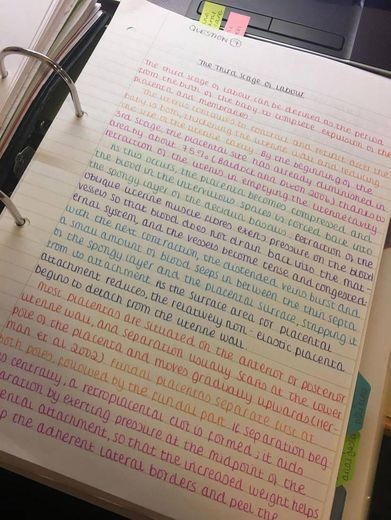 QUESTION 7
The Third Stage of Labour
The third stage of labour can be defined as the period
from the birth of the baby to complete expulsion of the
placenta and membranes.
The uterus continues to contract and retract after the
baby is born, thickening the uterine wall and reducing
the size of the uterine cavity. By the beginning of the
3rd stage, the placental site has already diminished in
area by about 75% thanks to
retraction of the uterus in emptying the uterine cavity.
As this occurs, the placenta becomes compressed and
the blood in the intervillous spaces is forced back into
the spongy layer of the decidua basalis. Retraction of the
oblique uterine muscle fibres exerts pressure on the blood
vessels, so that blood does not drain back into the mat-
ernal system, and the vessels become tense and congested.
With the next contraction, the distended veins burst and
a small amount of blood seeps in between the thin septa
of the spongy layer and the placental surface, stripping it
from its attachment. As the surface area for placental
attachment reduces, the relatively non-elastic placenta
begins to detach from the uterine wall.
Most placentas are situated on the anterior or posterior
uterine wall, and separation usually starts at the lower
pole of the placenta and moves gradually upwards (Her-
man et al 2002). Fundal placentas separate first at
both poles, followed by the fundal part. If separation beg-
s centrally, a retroplacental clot is formed; it aids
aration by exerting pressure at the midpoint of the
ental attachment, so that the increased weight helps
p the adherent lateral borders and peel the